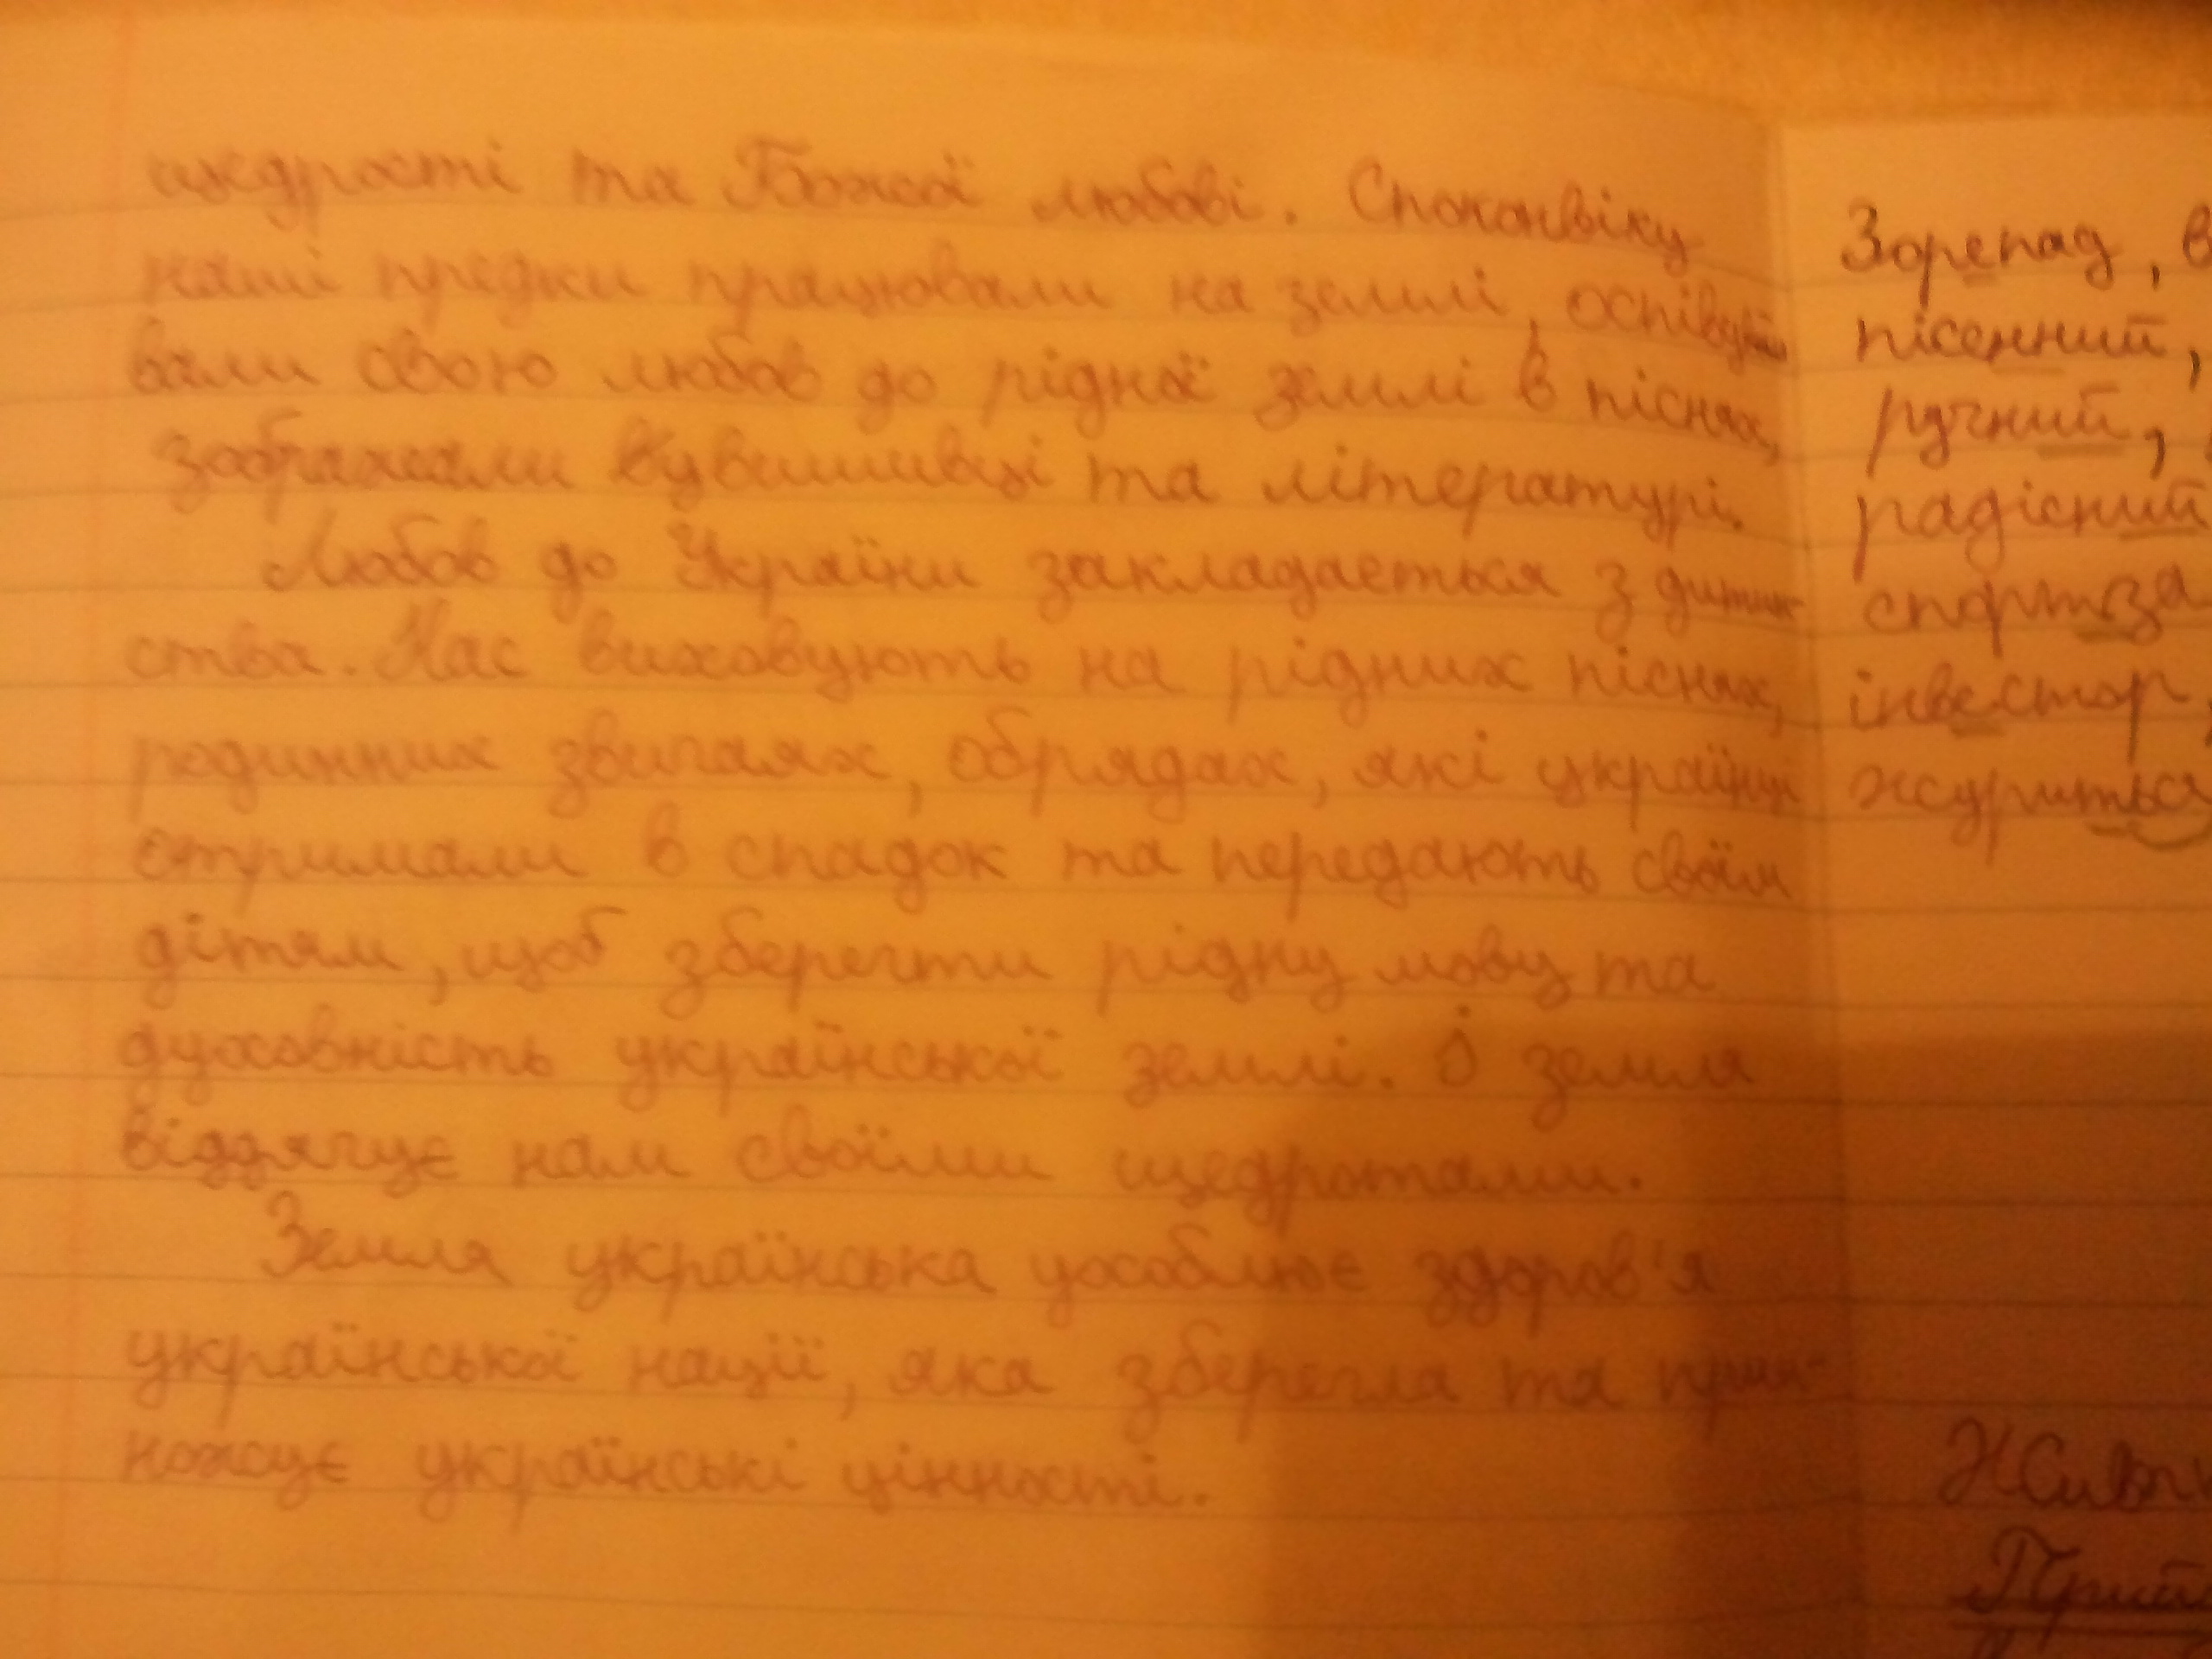 щедрості та Божої любові. Споконвіку
наші предки працювали на землі, оспіву
вали свою любов до рідної землі в піснях,
зображали вишивці та літературі.
Любов до України закладається з дитин-
ства. Нас виховують на рідних піснях,
родинних звичаях, обрядах, які українці
отримали в спадок та передають своїм
дітям, щоб зберегти рідну мову та
духовність української землі. І земля
віддячує нам своїми щедротами.
Земля українська уособлює здоров'я
української нації, яка зберегла та прим-
ножує українські цінності.
Зорепад, в
пісенний,
ручний,
радісний
спортза
інвестор,
журиться